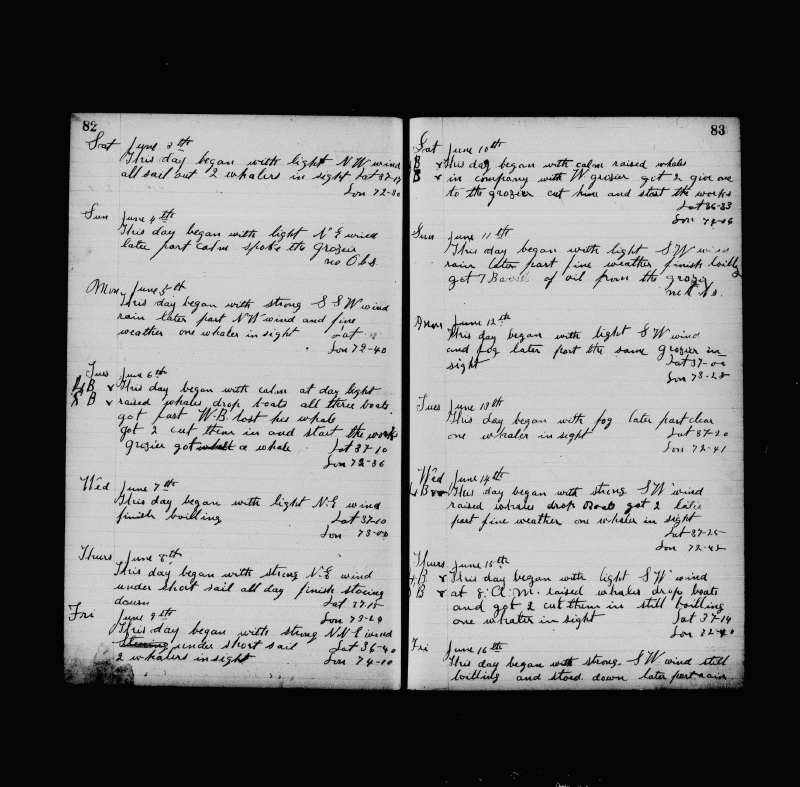 82
Sat June 3th
This day began with light N W wind
all sail out 2 whalers in sight Lat 37-17
Lon 72-30
Sun June 4th
This day began with light N-E wind
later part calm spoke the Grosier
no Obs
Mon June 5th
This day began with strong S S W wind
rain later part N W wind and fine
weather one whaler in sight Lat
Lon 72-40
Tues June 6th
4 B v This day began with calm at day light
8 B v raised whales drop boats all three boats
got fast W-B lost his whale
got 2 cut them in and start the works
Grosier got whale a whale Lat 37-10
Lon 72-36
Wed June 7th
This day began with light N-E wind
finish boilling Lat 37-10
Lon 73-00
Thurs June 8th
This day began with strong N-E wind
under short sail all day finish stowing
down Lat 37-15
Lon 73-29
Fri June 9th
This day began with strong N-N-E wind
under short sail Lat 36-40
2 whalers in sight Lon 74-10
83
Sat June 10th
B v This day began with calm raised whales
B v in company with W grosier got 2 give one
to the grosier cut him and start the works
Lat 36-33
Lon 74-06
Sun June 11th
This day began with light S W wind
rain later part fine weather finish boilling
got 7 Barrels of oil from the grosier
no Obs.
Mon June 12th
This day began with light S W wind
and fog later part the same Grosier in
sight Lat 37-00
Lon 73-28
Tues June 13th
This day began with fog later part clear
one whaler in sight Lat 37-20
Lon 72-41
Wed June 14th
B v v This day began with strong S W wind
raised whales drop Boats got 2 later
part fine weather one whaler in sight
Lat 37-25
Lon 72-42
Thurs June 15th
B v This day began with light S W wind
B v at 8. A. M. raised whales drop boats
and got 2 cut them in still boilling
one whaler in sight Lat 37-14
Lon 72-40
Fri June 16th
This day began with strong S W wind still
boilling and stowd down later part rain